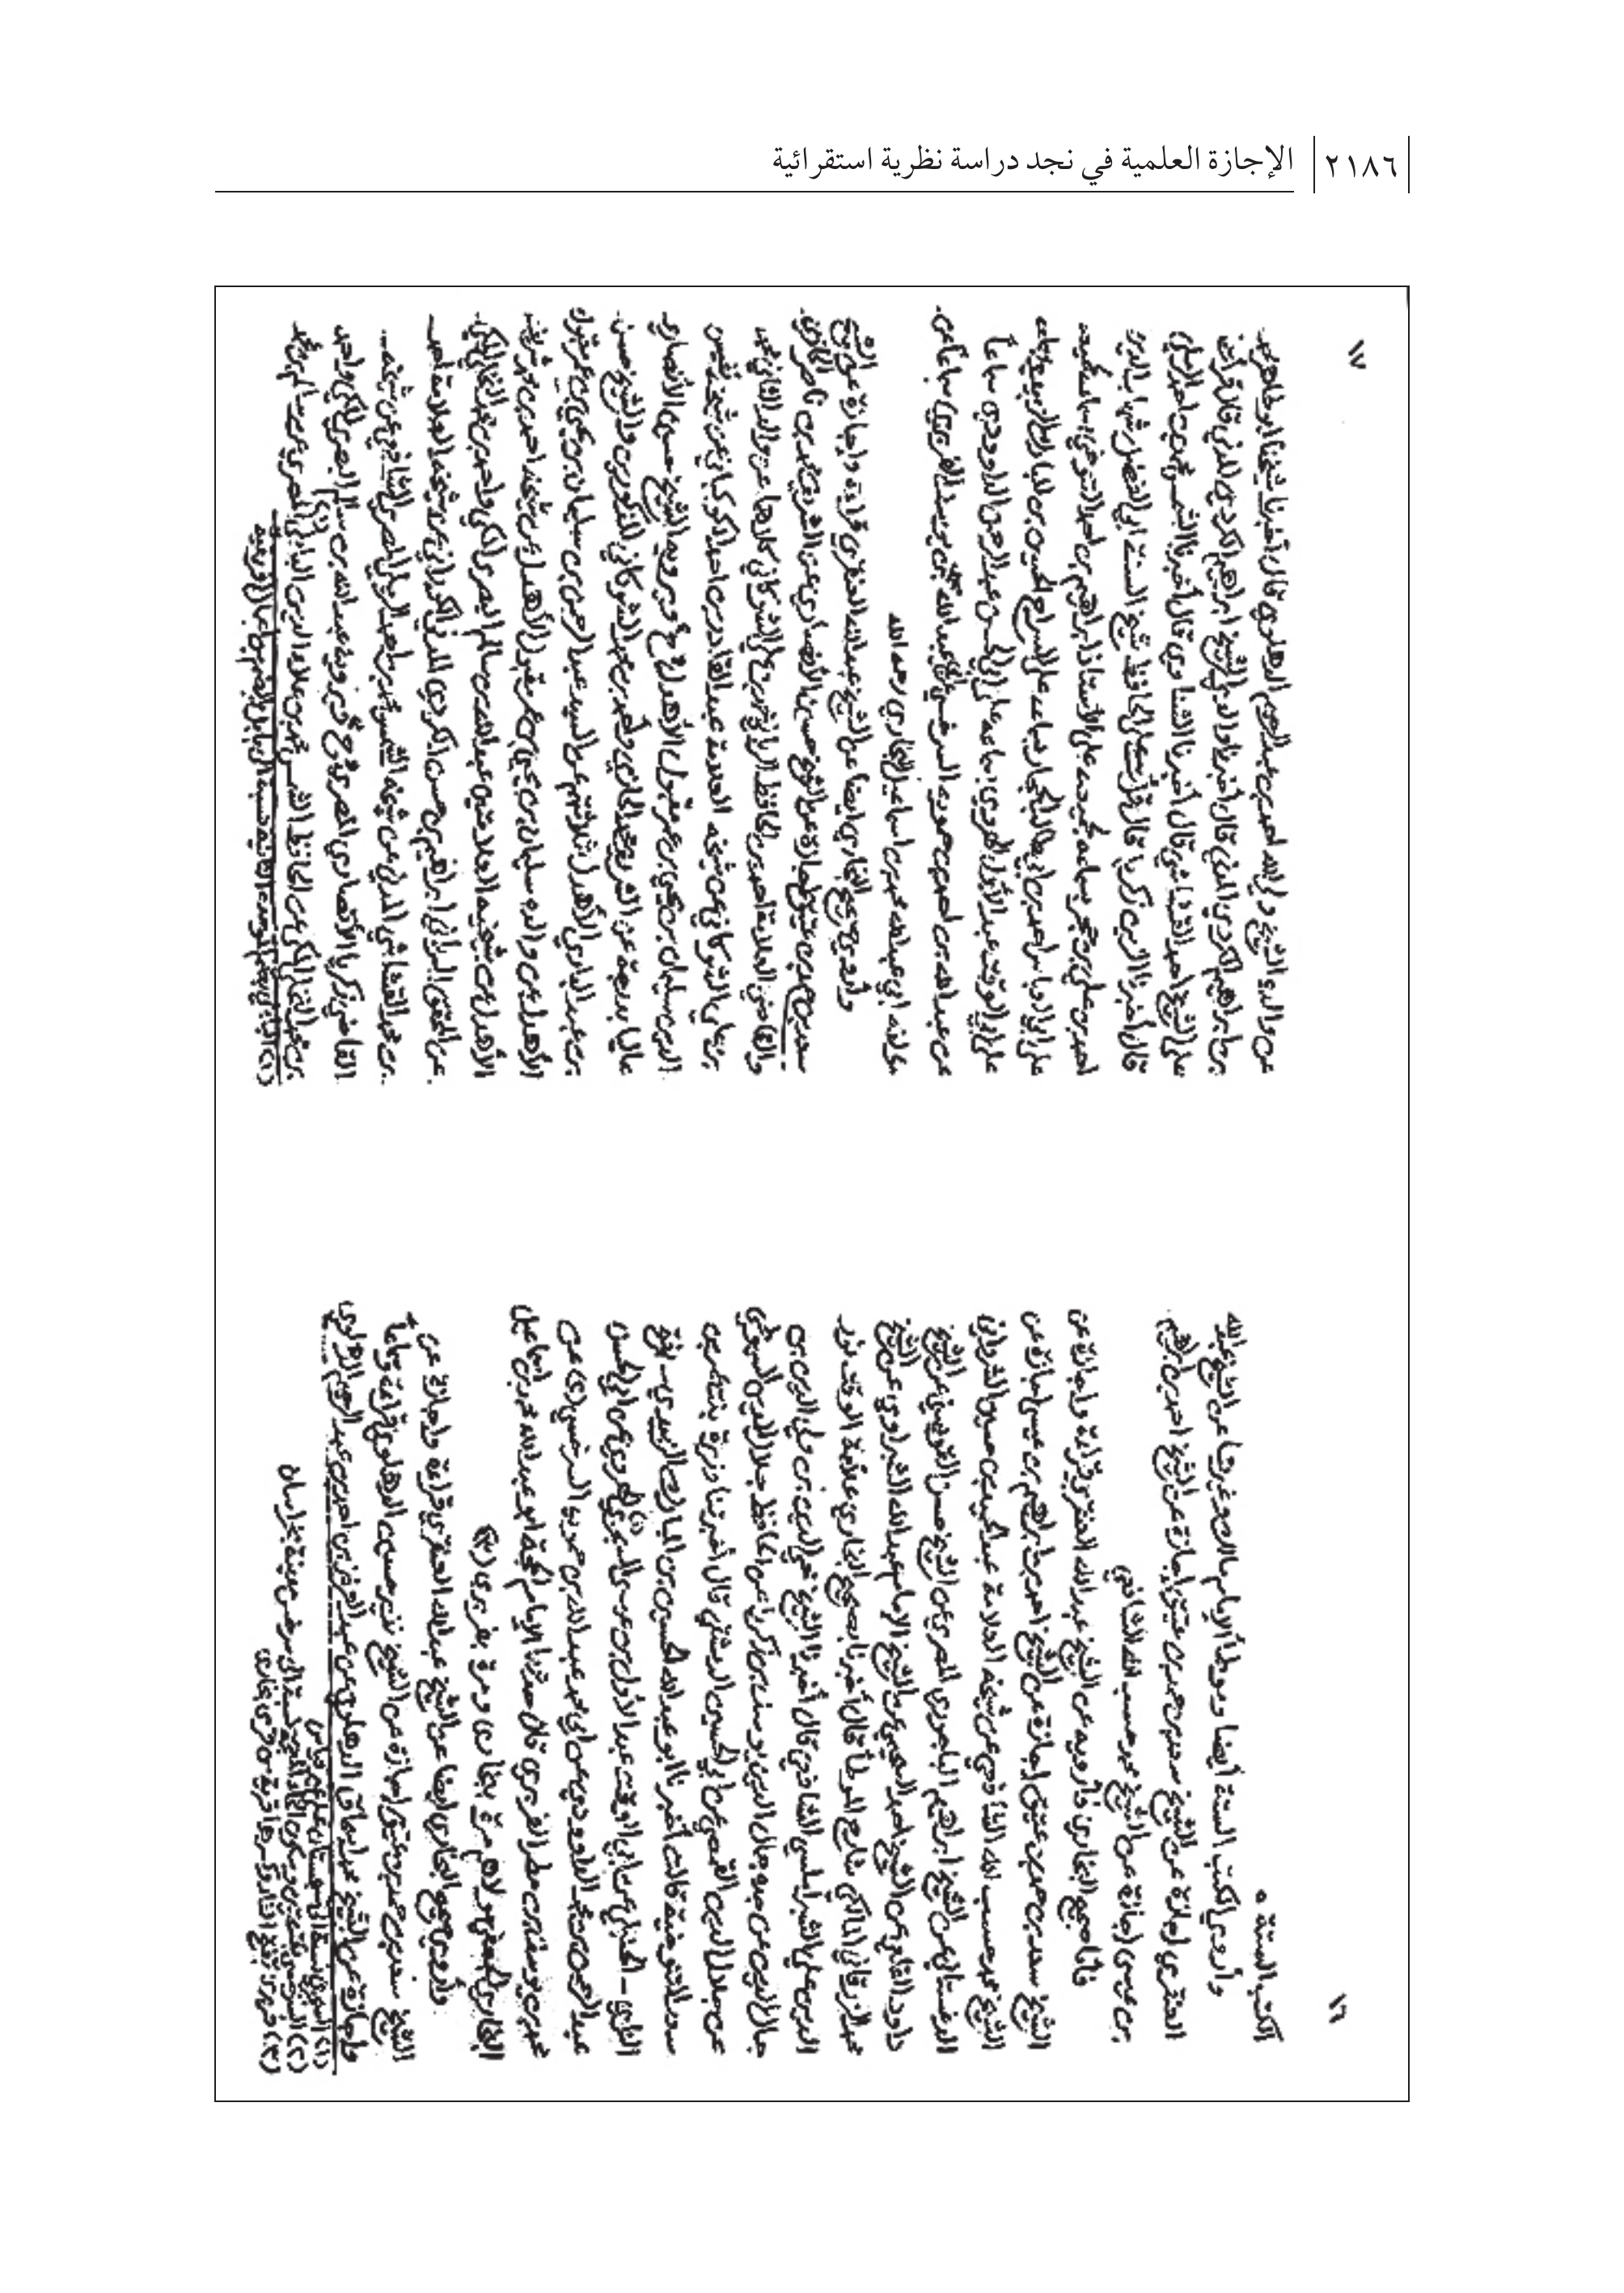 ٢١٨٦
الإجازة العلمية في نجد دراسة نظرية استقرائية
١٦
الكتب الستة .
وأروي الكتب الستة أيضا وموطأ الإمام مالك وغيرها عن الشيخ عبدالله
العنقري إجازة عن الشيخ سعد بن حمد بن عتيق إجازة عن الشيخ احمد بن إبراهيم
بن عيسى إجازة عن الشيخ محمد حسب الله الشافعي
فأما صحيح البخاري فأرويه عن الشيخ عبدالله العنقري قراءة وإجازة عن
الشيخ سعد بن حمد بن عتيق إجازة عن الشيخ احمد بن إبراهيم بن عيسى إجازة عن
الشيخ محمد حسب الله الشافعي عن شيخه العلامة عبدالحميد بن حسين الشرواني
الدغستاني عن الشيخ إبراهيم الباجوري المصري عن الشيخ حسن القويسني عن الشيخ
داود القلعي عن الشيخ احمد السحيمي عن الشيخ الإمام عبدالله الشبراوي عن الشيخ
محمد الزرقاني المالكي شارح الموطأ قال أخبرنا بصحيح البخاري علامة الوقت نور
الدين علي الشبراملسي الشافعي قال أخبرنا الشيخ محي الدين بن ولي الدين بن
جمال الدين عن جده جمال الدين يوسف بن زكريا عن الحافظ جلال الدين السيوطي
عن جلال الدين القمصي عن ابي الحسين الدمشقي قال أخبرتنا وزيرة بنت محمد بن
سعد التنوخية قالت أخبرنا ابو عبدالله الحسين بن المبارك الزبيدي
الحنبلي عن ابي الوقت عبد الأول بن عيسى السجزي الهروي عن ابي الحسن
عبدالرحمن بن محمد الداوودي عن ابي محمد عبدالله بن حمويه السرخسي عن
محمد بن يوسف بن مطر الفربري قال حدثنا الإمام الحجة ابو عبدالله محمد بن إسماعيل
البخاري الجعفي مولاهم مرة ببخارى ومرة بفربر (٣)
وأروي صحيح البخاري ايضا عن الشيخ عبدالله العنقري قراءة وإجازة عن
الشيخ سعد بن حمد بن عتيق إجازة عن الشيخ نذير حسين الدهلوي قراءة وسماعاً
وإجازة عن الشيخ محمد إسحاق الدهلوي عن عبدالعزيز بن احمد بن عبدالرحيم الدهلوي
(١) السجزي نسبة الى سجستان
(٢) السرخسي نسبة الى سرخس مدينة بخراسان
(٣) فربر قرية من قرى بخارى
١٧
عن والده الشيخ ولي الله احمد بن عبدالرحيم الدهلوي قال أخبرنا شيخنا ابو طاهر محمد
بن إبراهيم الكردي المدني قال أخبرنا والدي الشيخ إبراهيم الكردي المدني قال قرأت
على الشيخ احمد القشاشي قال أخبرنا الشناوي قال أخبرنا الشمس محمد بن احمد الرملي
قال أخبرنا الزين زكريا قال قرأت على الحافظ شيخ السنة ابي الفضل شهاب الدين
احمد بن علي بن حجر بسماعه لجميعه على الأستاذ إبراهيم بن احمد التنوخي بسماعه لجميعه
على ابي العباس احمد بن ابي طالب الحجار بسماعه على السراج الحسين بن المبارك الزبيدي بسماعه
على ابي الوقت عبد الأول الهروي بسماعه على ابي الحسن عبدالرحمن الداوودي سماعاً
عن عبدالله بن احمد بن حمويه السرخسي عن ابي عبدالله محمد بن يوسف الفربري سماعاً عن
مؤلفه ابي عبدالله محمد بن اسماعيل البخاري رحمه الله
وأروي صحيح البخاري ايضاً عن الشيخ عبدالله العنقري قراءة وإجازة عن الشيخ
سعد بن حمد بن عتيق إجازة عن الشيخ حسين الأنصاري عن الشريف محمد بن ناصر الحازمي
والقاضي العلامة احمد بن الحافظ الرباني محمد بن علي الشوكاني كلاهما عن والد الثاني محمد
بن علي الشوكاني عن شيخه العلامة عبدالقادر بن احمد الكوكباني عن شيخه نفيس
الدين سليمان بن يحيى بن عمر مقبول الأهدل ح ويرويه الشيخ حسين الأنصاري
عاليا بدرجة عن الشريف محمد الحازمي واحمد بن محمد الشوكاني المذكورين والشيخ حسن
بن عبدالباري الأهدل ثلاثتهم عن السيد عبدالرحمن بن سليمان بن يحيى بن عمر مقبول
الأهدل عن والده سليمان بن يحيى بن عمر مقبول الأهدل عن شيخه احمد بن محمد شريف
الأهدل عن شيخيه العلامتين عبدالله بن سالم البصري المكي واحمد بن محمد النخلي المكي
عن المحقق الرباني إبراهيم بن حسن الكردي المدني الكوراني عن شيخه العلامة احمد
بن محمد القشاشي المدني عن شيخه الشمس محمد بن احمد الرملي المصري الشافعي عن شيخه
القاضي زكريا الأنصاري المصري ح ويرويه عبدالله بن سالم البصري المكي واحمد
بن محمد النخلي المكي عن الحافظ الشمس محمد بن علاء الدين البابلي المصري عن سالم بن محمد